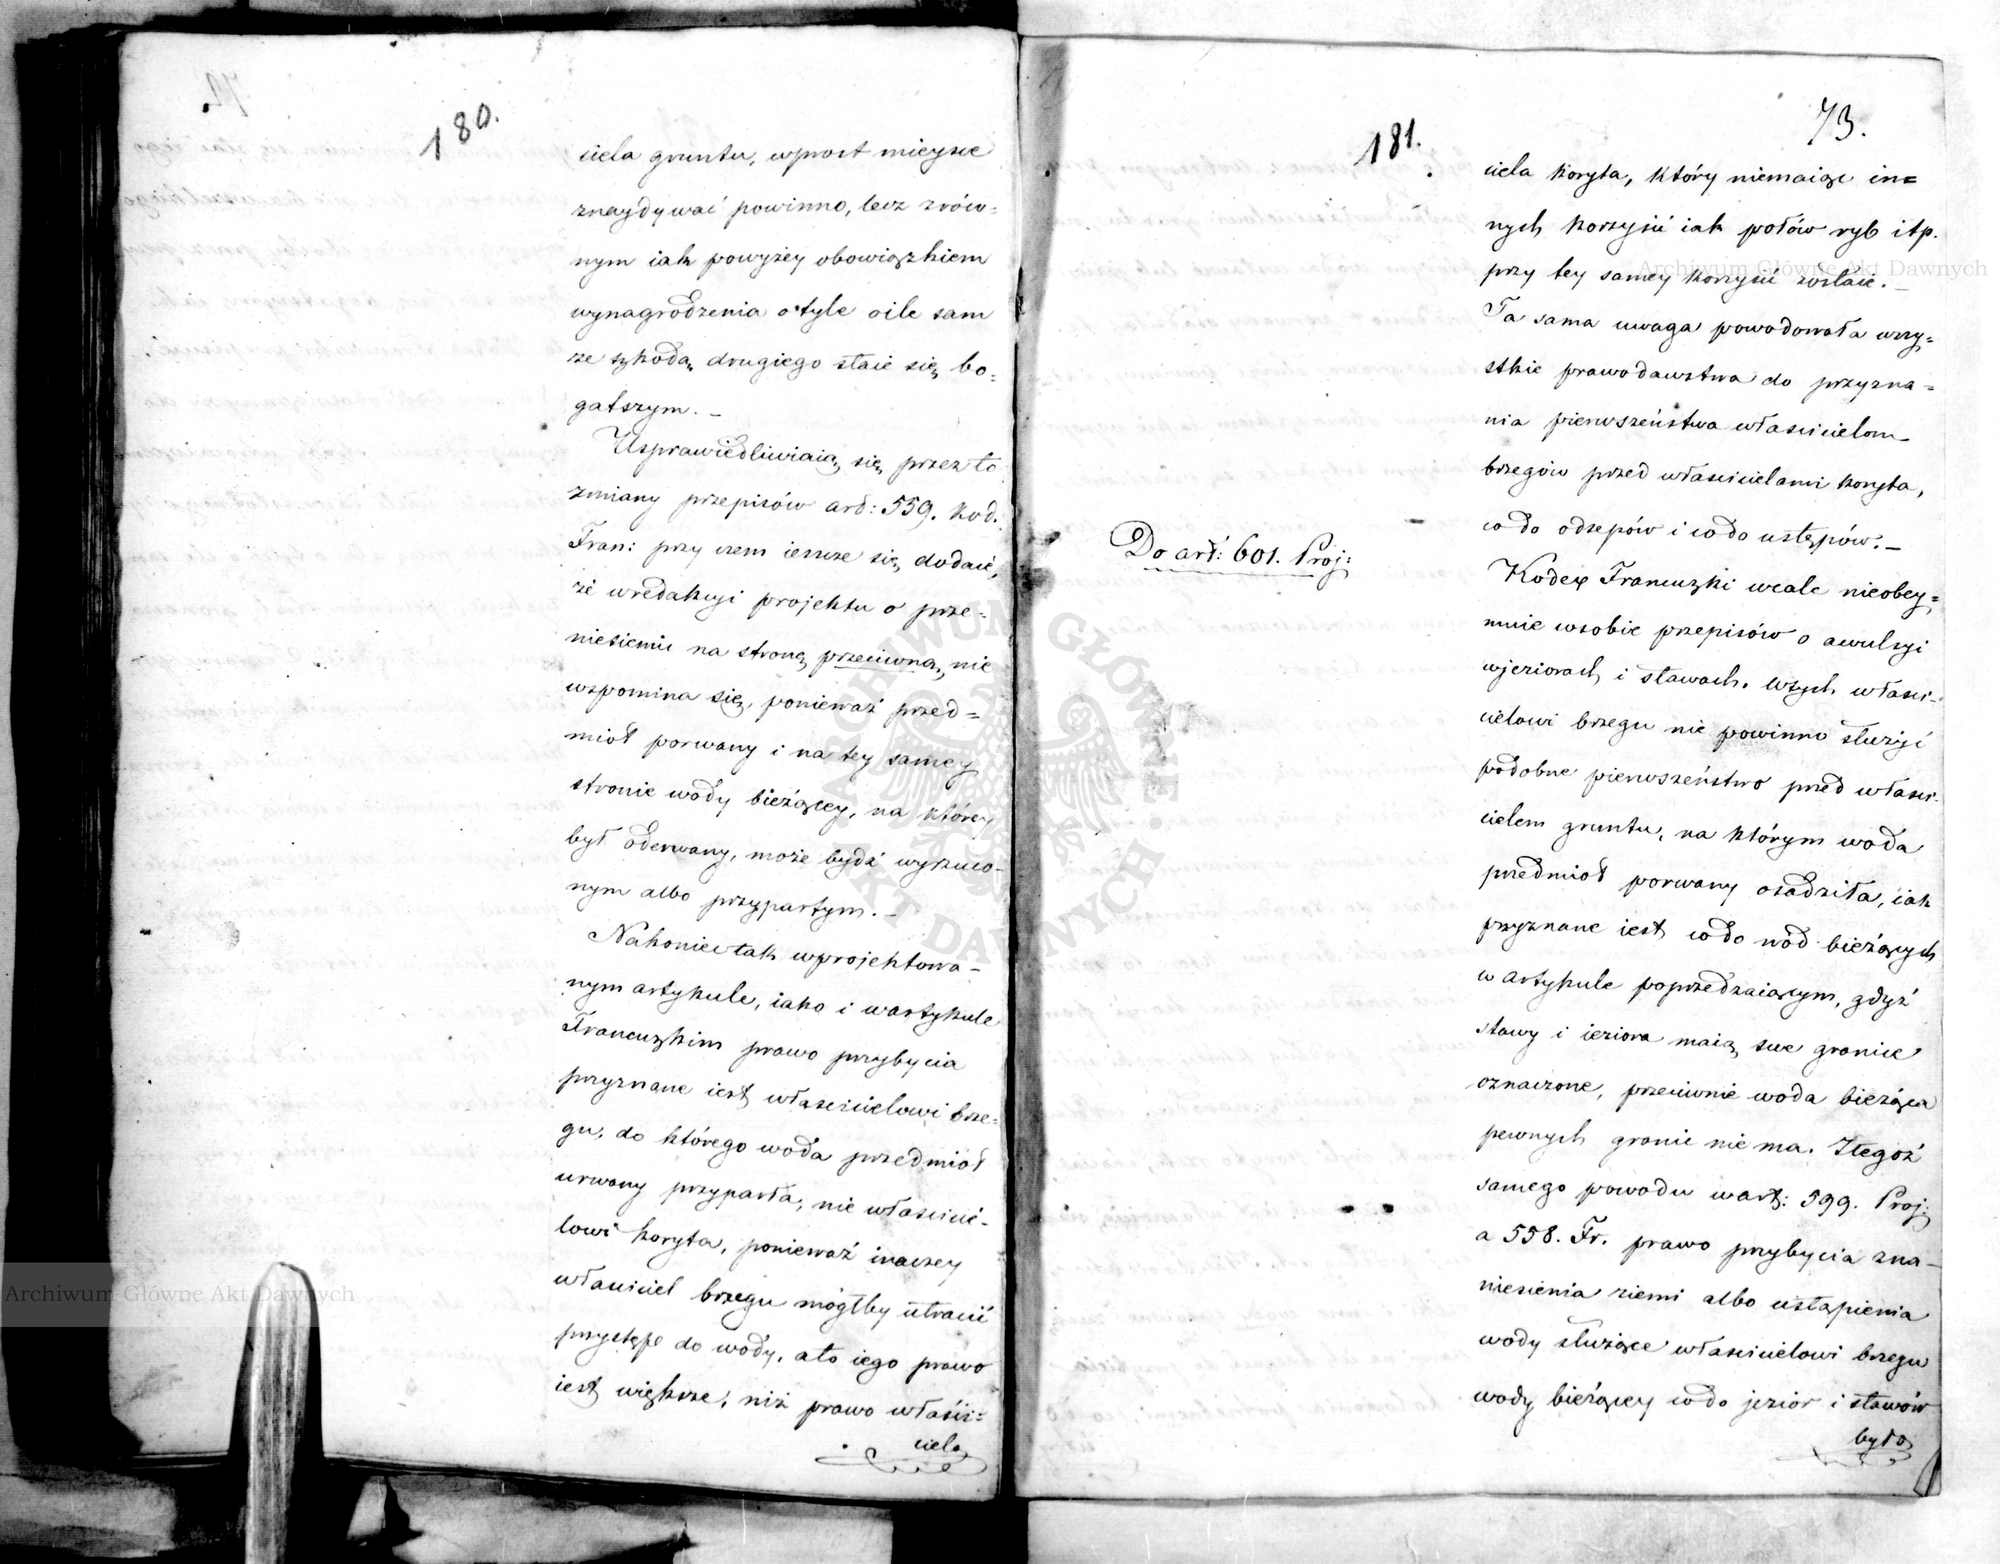 180.
ciela gruntu, wprost mieysce
znaydywać powinno, lecz zrów-
nym iak powyżey obowiązkiem
wynagrodzenia o tyle oile sam
ze szkodą drugiego staie się bo-
gatszym. –
Usprawiedliwiaią się przez to
zmiany przepisów art: 559. Kod.
Fran: przy czem ieszcze się dodaie,
że wredakcyi projektu o prze-
niesieniu na stronę przeciwną, nie
wspomina się, ponieważ przed=
miot porwany i na tey samey
stronie wody bieżącey, na którey
był oderwany, może bydź wyrzuco-
nym albo przypartym. –
Nakoniec tak wprojektowa-
nym artykule, iako i wartykule
Francuzkim prawo przybycia
przyznane iest właścicielowi brze-
gu, do którego woda przedmiot
urwany przyparła, nie właścicie-
lowi koryta, ponieważ inaczey
właściciel brzegu mógłby utracić
przystęp do wody, a to iego prawo
iest większe, niż prawo właści=
ciela
73.
181.
ciela koryta, który niemaiąc in=
nych korzyści iak połów ryb itp.
przy tey samey korzyści zostaie. –
Ta sama uwaga powodowała wszy=
stkie prawodawstwa do przyzna=
nia pierwszeństwa właścicielom
brzegów przed właścicielami koryta,
codo odsepów i codo ustępów. –
Do art: 601. Proj:
Kodex Francuzki wcale nieobey=
muie wsobie przepisów o awulsyi
wjeziorach i stawach. Wtych właści-
cielowi brzegu nie powinno służyć
podobne pierwszeństwo przed właści-
cielem gruntu, na którym woda
przedmiot porwany osadziła, iak
przyznane iest codo wód bieżących
w artykule poprzedzaiącym, gdyż
stawy i ieziora maią swe granice
oznaczone, przeciwnie woda bieżąca
pewnych granic nie ma. Ztegoż
samego powodu wart: 599. Proj:
a 558. Fr. prawo przybycia zna-
niesienia ziemi albo ustąpienia
wody służące właścicielowi brzegu
wody bieżącey codo jezior i stawów
było
Archiwum Główne Akt Dawnych
Archiwum Główne Akt Dawnych
ARCHIWUM GŁÓWNE AKT DAWNYCH